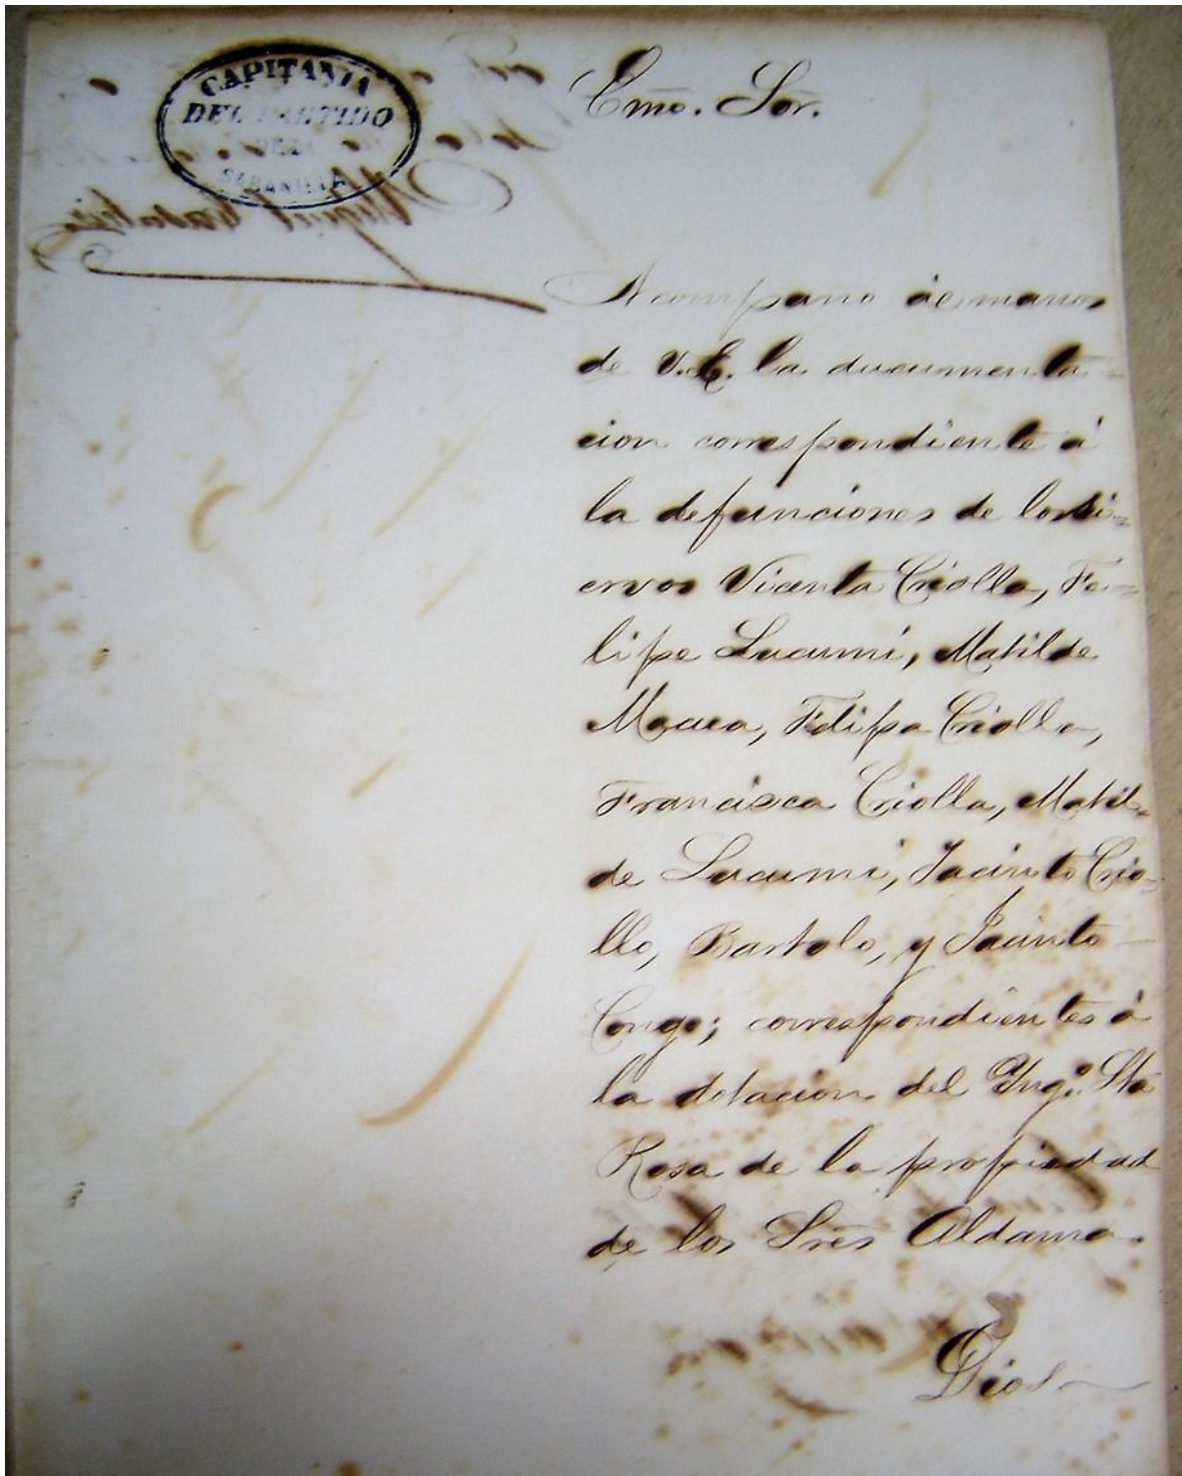 CAPITANIA
DEL PARTIDO
DE LA
SABANILLA
Emo. Sor.
Acompaño á manos
de V.E. la documenta-
cion correspondiente á
la defunciones de los si-
ervos Vicenta Criolla, Fe-
lipe Lucumí, Matilde
Macua, Felipa Criolla,
Francisca Criolla, Matil-
de Lucumi, Jacinto Crio-
llo, Bartolo, y Jacinto
Congo; correspondientes á
la dotacion del Yngº. Sta
Rosa de la propiedad
de los Sres Aldama.
Dios